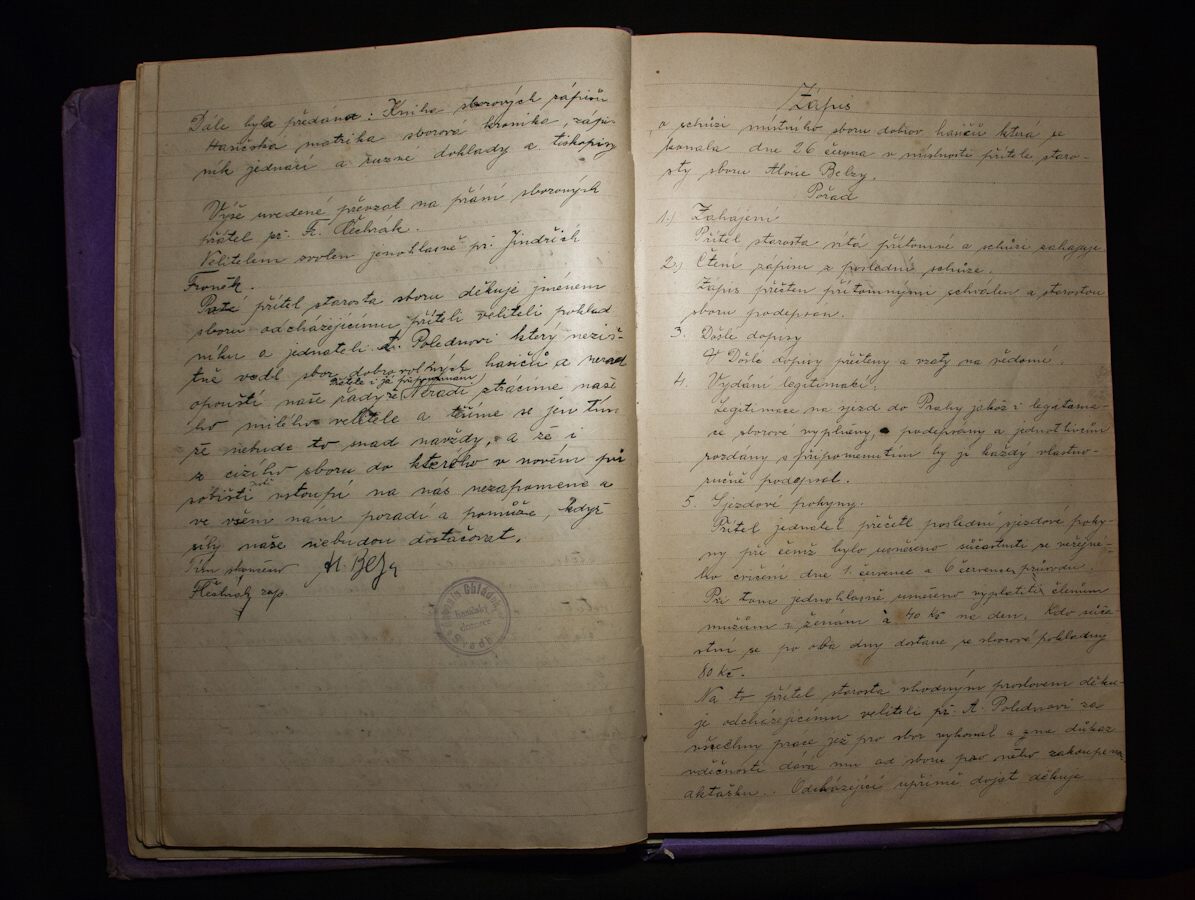 Dále byla předána: Kniha sborových zápisů
Hasičská matrika sborová kronika, zápi-
ník jednací a různé doklady a tiskopisy
Výše uvedené převzal na přání sborových
přátel př. Fr. Těchrák.
Velitelem zvolen jenohlasně př. Jindřich
Froněk.
Poté přítel starosta sboru děkuje jménem
sboru odcházejícímu příteli veliteli poklad
níku a jednateli A. Polednovi který neziš-
tně vedl sbor dobrovolných hasičů a nerad
opouští naše řady
ztrácíme naše
ho milého velitele a těšíme se jen tím
že nebude to snad navždy, a že i
z cizího sboru do kterého v novém pů
sobišti vstoupí na nás nezapomene a
ve všem nám poradí a pomůže, když
síly naše nebudou dostačovat.
Tím skončeno
zap.
Hasičský
Zápis
o schůzi místního sboru dobrov. hasičů která se
konala dne 26 června v místnosti přítele staro-
sty sboru Aloise Belzy.
Pořad
1.) Zahájení
Přítel starosta vítá přítomné a schůzi zahajuje
2.) Čtení zápisu z poslední schůze.
Zápis přečten přítomnými schválen a starostou
sboru podepsán.
3. Došlé dopisy
Došlé dopisy přečteny a vzaty na vědomí.
4. Vydání legitimací:
Legitimace na sjezd do Prahy jakož i legitima-
ce sborové vyplněny, podepsány a jednotlivcům
rozdány s připomenutím by je každý vlastno-
ručně podepsal.
5. Sjezdové pokyny.
Přítel jednatel přečetl poslední sjezdové poky-
ny při čemž bylo usneseno súčastniti se veřejné-
ho cvičení dne 1. července a 6 července průvodu.
Při tom jednohlasně usneseno vyplatiti členům
mužům i ženám à 40 Kč na den. Kdo súča-
stní se po oba dny dostane ze sborové pokladny
80 Kč.
Na to přítel starosta vhodným proslovem děku-
je odcházejícímu veliteli př. A. Polednovi za
všechny práce jež pro sbor vykonal a na důkaz
vděčnosti dává mu od sboru pro něho zakoupenou
aktašku. Odcházející upřímně dojat děkuje